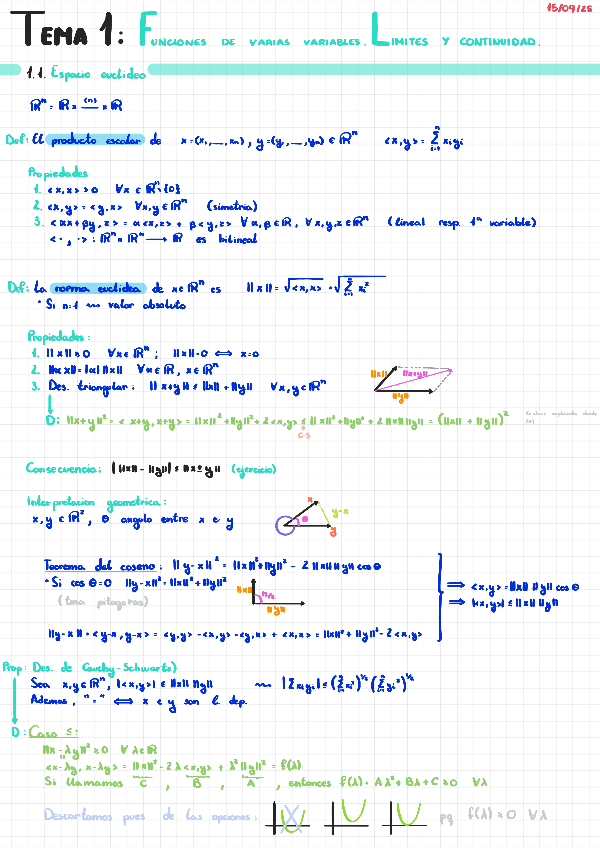 15/09/25
TEMA 1: FUNCIONES DE VARIAS VARIABLES. LIMITES Y CONTINUIDAD.
1.1. Espacio euclideo
ℝⁿ = ℝ × (n) × ℝ
Def: El producto escalar de x=(x₁,...,xₙ), y=(y₁,...,yₙ) ∈ ℝⁿ <x,y> = Σⁿᵢ₌₁ xᵢyᵢ
Propiedades
1. <x,x> > 0 ∀x ∈ ℝⁿ\{0}
2. <x,y> = <y,x> ∀x,y ∈ ℝⁿ (simetria)
3. <αx+βy,z> = α<x,z> + β<y,z> ∀α,β ∈ ℝ, ∀x,y,z ∈ ℝⁿ (lineal resp. 1ª variable)
<·,·>: ℝⁿ×ℝⁿ → ℝ es bilineal
Def: La norma euclidea de x∈ℝⁿ es ||x|| = √<x,x> = √Σⁿᵢ₌₁ xᵢ²
· Si n=1 ⇝ valor absoluto
Propiedades:
1. ||x|| ≥ 0 ∀x ∈ ℝⁿ ; ||x||=0 ⟺ x=0
2. ||αx|| = |α| ||x|| ∀α∈ℝ, x∈ℝⁿ
3. Des. triangular: ||x+y|| ≤ ||x|| + ||y|| ∀x,y∈ℝⁿ
||x|| ||x+y|| ||y||
D: ||x+y||² = <x+y,x+y> = ||x||²+||y||²+2<x,y> ≤ ||x||²+||y||²+2||x||||y|| = (||x||+||y||)²
C-S
Consecuencia: | ||x|| - ||y|| | ≤ ||x±y|| (ejercicio)
Interpretacion geometrica:
x,y ∈ ℝ², θ angulo entre x e y
x y-x θ y
Teorema del coseno: ||y-x||² = ||x||²+||y||² - 2||x||||y||cosθ
· Si cosθ=0 ||y-x||² = ||x||²+||y||²
(tma pitagoras)
||x|| π/2 ||y||
⟹ <x,y> = ||x||||y||cosθ
⟹ |<x,y>| ≤ ||x||||y||
||y-x|| = <y-x,y-x> = <y,y> - <x,y> - <y,x> + <x,x> = ||x||²+||y||²-2<x,y>
Prop: Des. de Cauchy-Schwartz)
Sea x,y∈ℝⁿ, |<x,y>| ≤ ||x||||y|| ⇝ |Σxᵢyᵢ| ≤ (Σⁿᵢ₌₁xᵢ²)^½ (Σⁿᵢ₌₁yᵢ²)^½
Ademas, "=" ⟺ x e y son l. dep.
D: Caso ≤:
||x-λy||² ≥ 0 ∀λ∈ℝ
"
<x-λy, x-λy> = ||x||² - 2λ<x,y> + λ²||y||² = f(λ)
Si llamamos C, B, A, entonces f(λ) = Aλ²+Bλ+C ≥ 0 ∀λ
Descartamos pues de las opciones: pq f(λ) ≥ 0 ∀λ